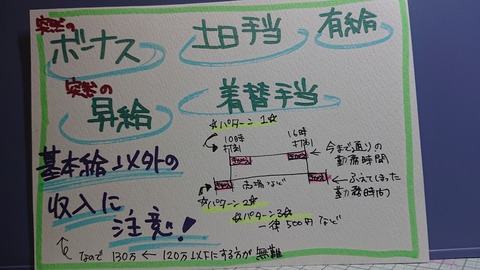 突然の
ボーナス
土日手当
有給
突然の
昇給
着替手当
☆パターン1☆
10時
打刻
16時
打刻
今まで通りの
勤務時間
基本給以外の
収入に
注意!
ふえてしまった
☆パターン2☆
☆パターン3☆
一律500円など
なので 130万 ← 120万以下にする方が無難